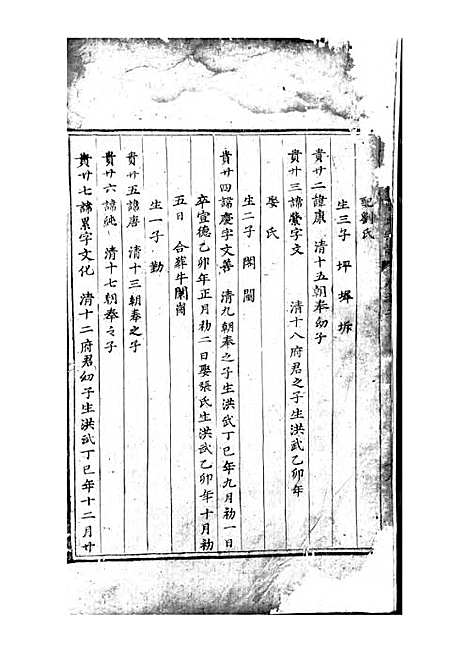 配劉氏
生三子 坪 墀 坼
貴廿二諱康 清十五朝奉幼子
貴廿三諱 字文 清十八府君之子生洪武乙卯年
娶 氏
生二子 閣 閫
貴廿四諱慶字文善 清九朝奉之子生洪武丁巳年九月初一日
卒宣德乙卯年正月初二日娶張氏生洪武乙卯年十月初
五日 合葬牛闌崗
生一子 勤
貴廿五諱唐 清十三朝奉之子
貴廿六諱純 清十七朝奉之子
貴廿七諱累字文化 清十二府君幼子生洪武丁巳年十二月廿